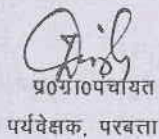 प्र०ग्रा०पंचायत
पर्यवेक्षक, परबत्ता